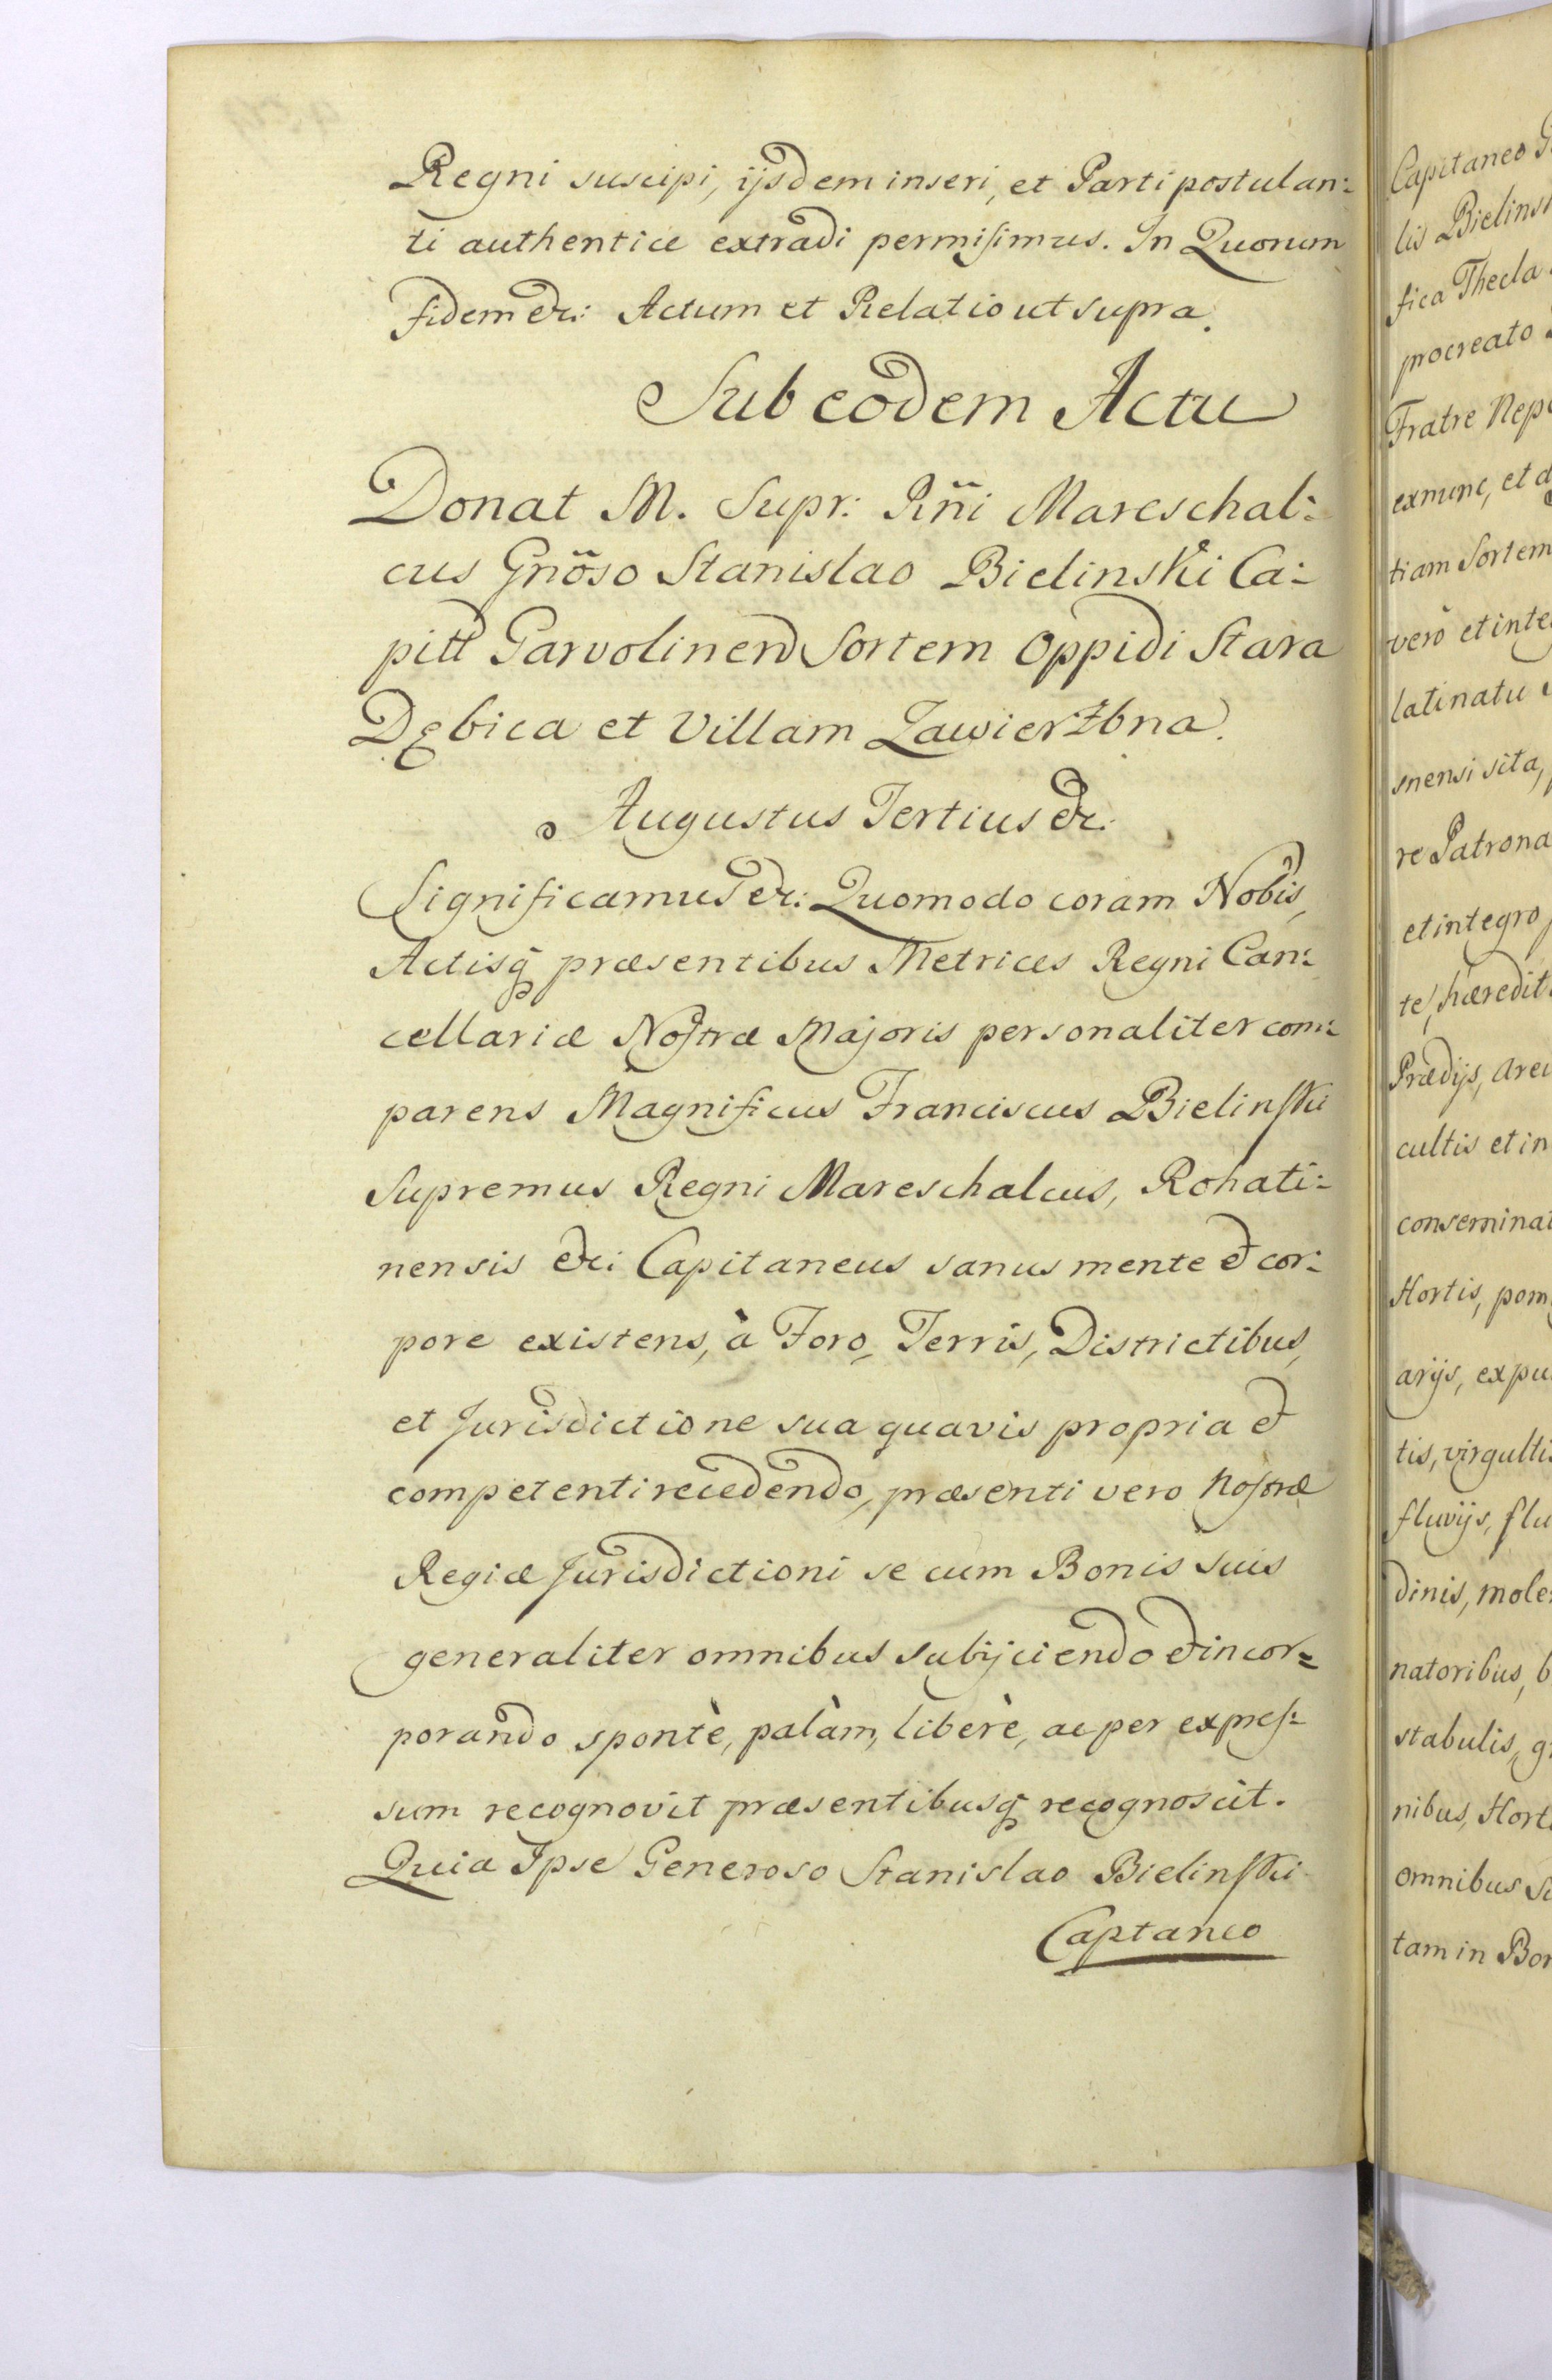 Regni suscipi, ijsdem inseri, et Parti postulan:
ti authentice extradi permisimus. In Quorum
fidem &c: Actum et Relatio ut supra.
Sub eodem Actu
Donat M. Supr: Rñi Mareschal:
cus Gnõso Stanislao Bielinski Ca:
pitt Garvolinen Sortem Oppidi Stara
Dębica et Villam Zawierżbna.
Augustus Tertius &c:
Significamus &c: Quomodo coram Nobis,
Actisq præsentibus Metrices Regni Can:
cellariæ Nostræ Majoris personaliter com:
parens Magnificus Franciscus Bielinski
Supremus Regni Mareschalcus, Rohati:
nensis &c: Capitaneus sanus mente & cor:
pore existens, à Foro, Terris, Districtibus,
et Jurisdictione sua quavis propria &
competenti recedendo, præsenti vero Nostræ
Regiæ Jurisdictioni se cum Bonis suis
generaliter omnibus subijciendo & incor:
porando spontè, palàm, liberè, ac per expres:
sum recognovit præsentibusq recognoscit.
Quia Ipse Generoso Stanislao Bielinski
Captaneo
Capitaneo G
lis Bielins
fica Thecla
procreato
Fratre Nep
exnunc, et d
tiam Sortem
verò et inte
latinatu
mensi sita,
re Patrona
et integro
te, hæredit
Prædijs, are
cultis et in
conseminat
Hortis, pom
arijs, expu
tis, virgulti
fluvijs, flu
dinis, mole
natoribus, b
stabulis, g
nibus, Hort
omnibus Su
tam in Bon